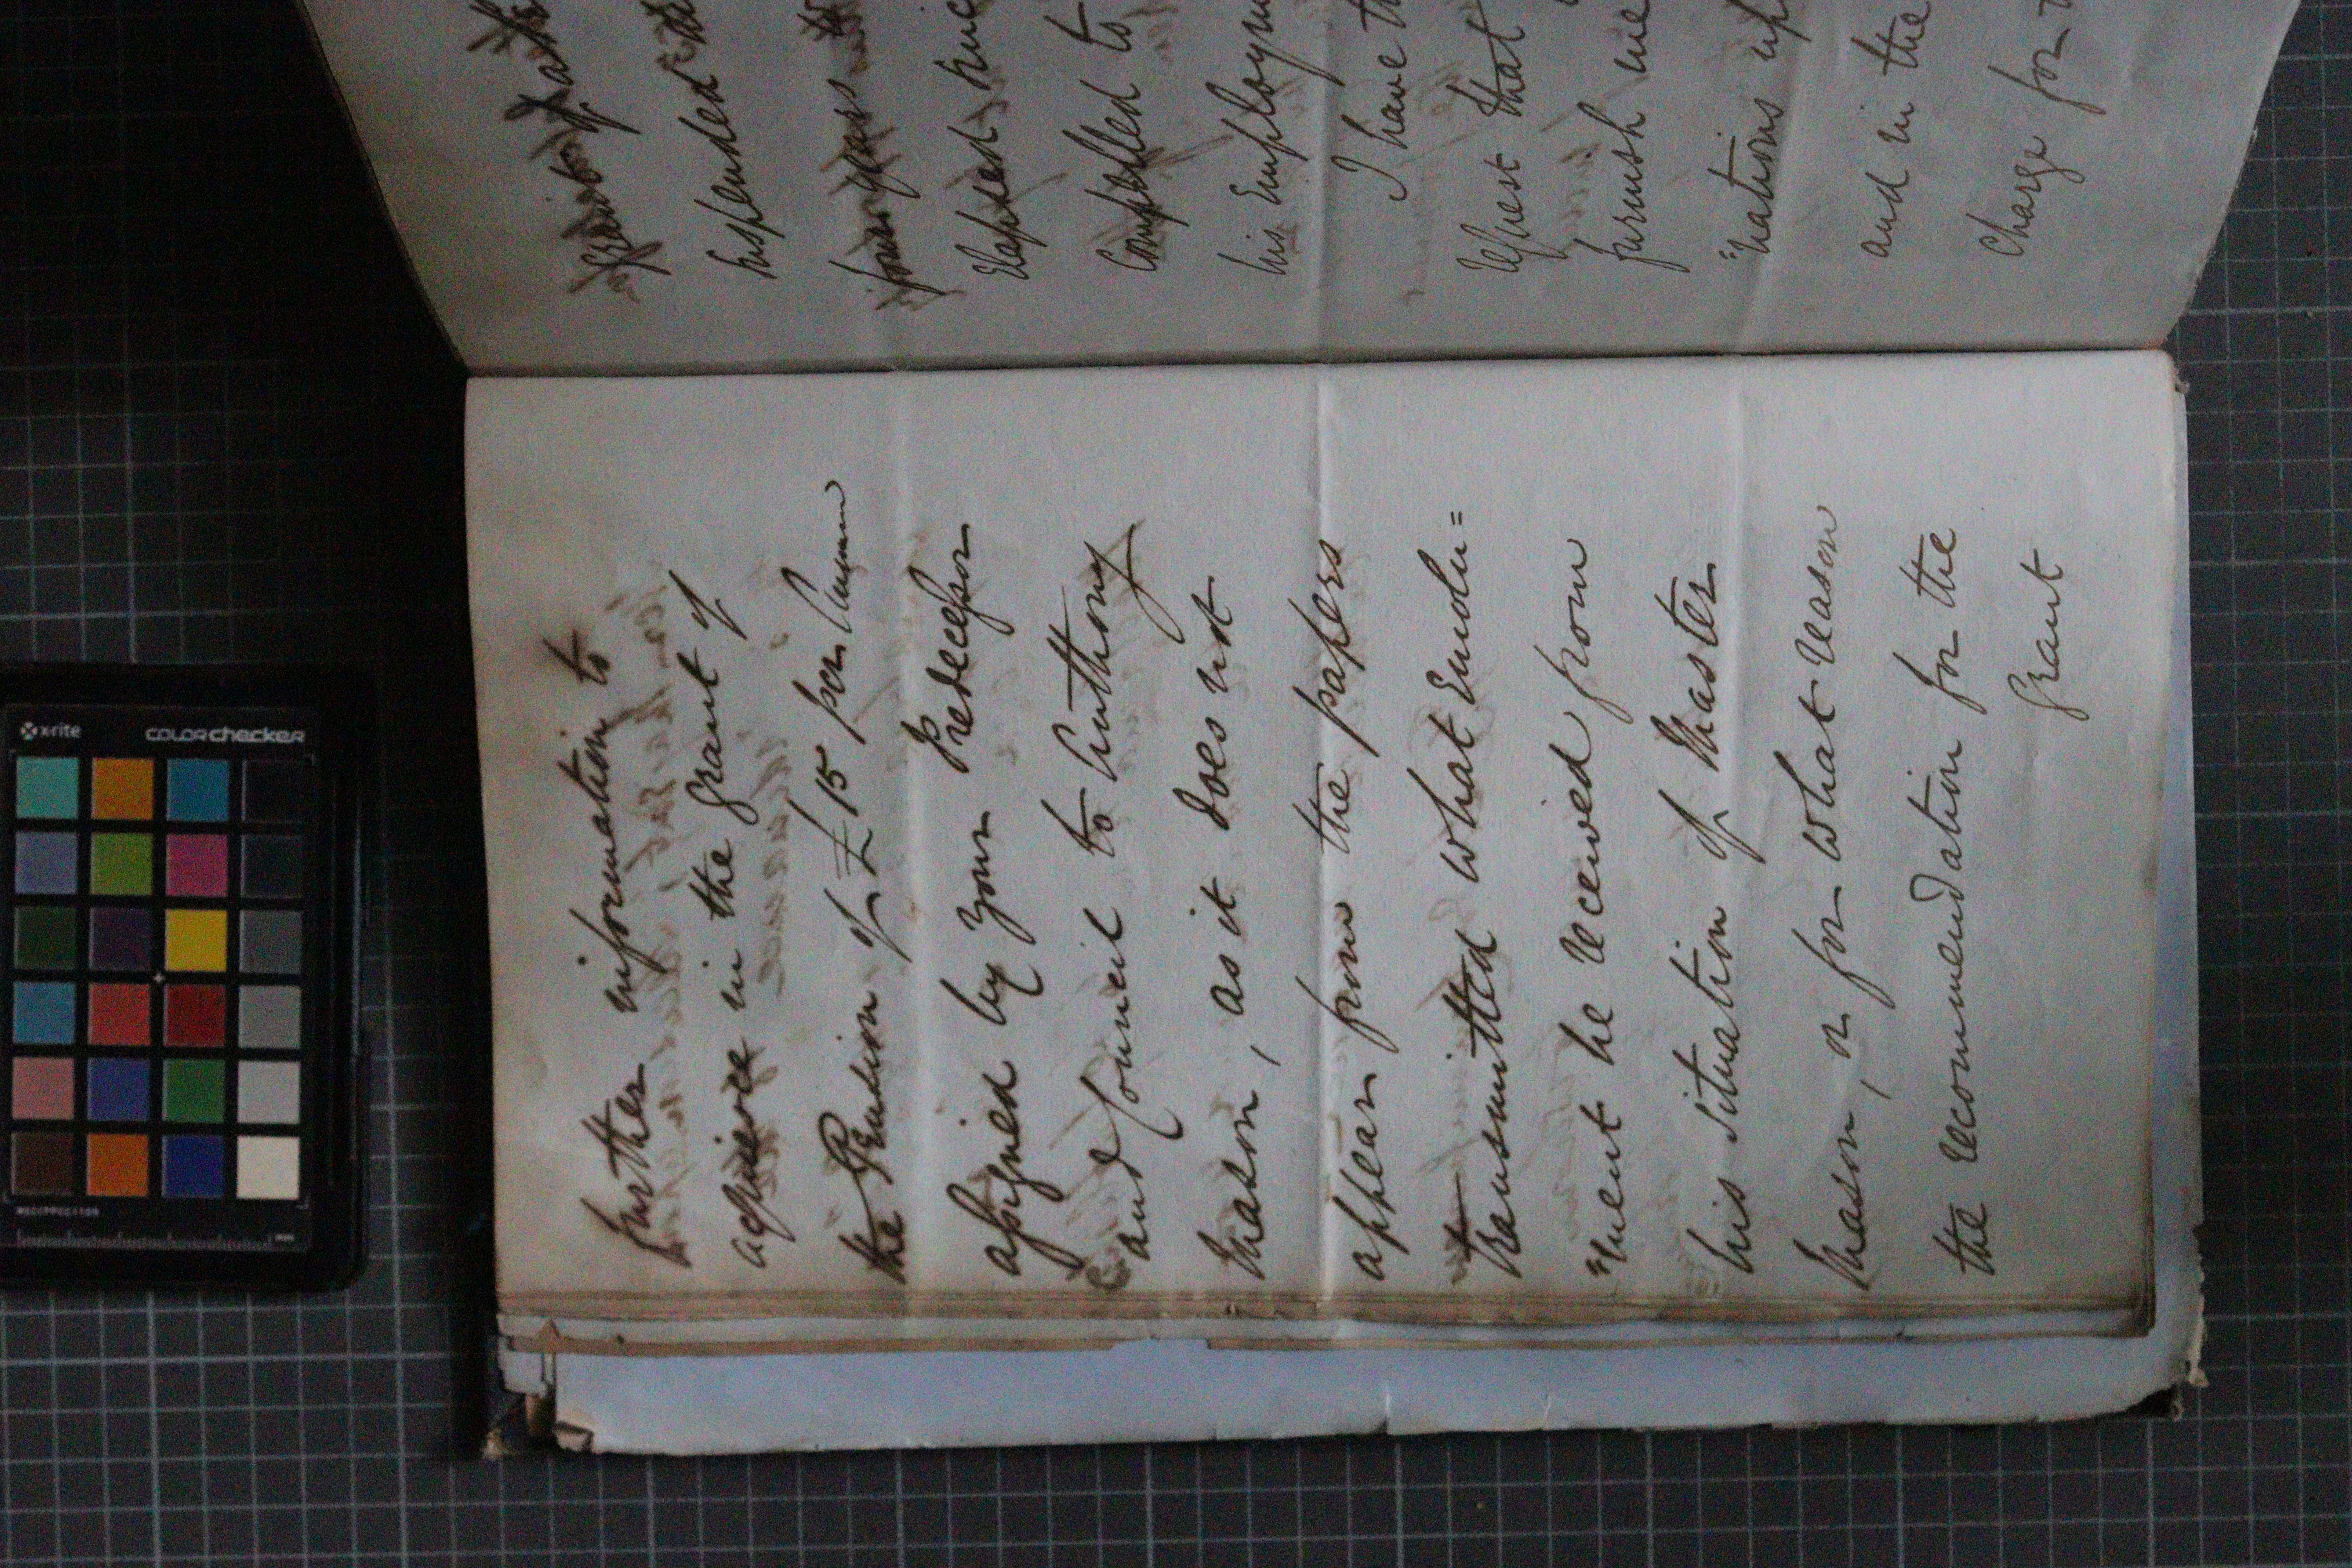 further information to
acquiesce in the grant of
the Pension of £15 per Annum
assigned by your Predecessor
and Council to Anthony
Mason, as it does not
appear from the papers
transmitted what Emolu=
"ment he received from
his situation of Master
Mason, or for what reason
the recommendation for the
Grant
suspended
four years
elapsed
compelled to
his Employm
I have th
request that
furnish me
"nations up
and in the
Charge for
x-rite
colorchecker